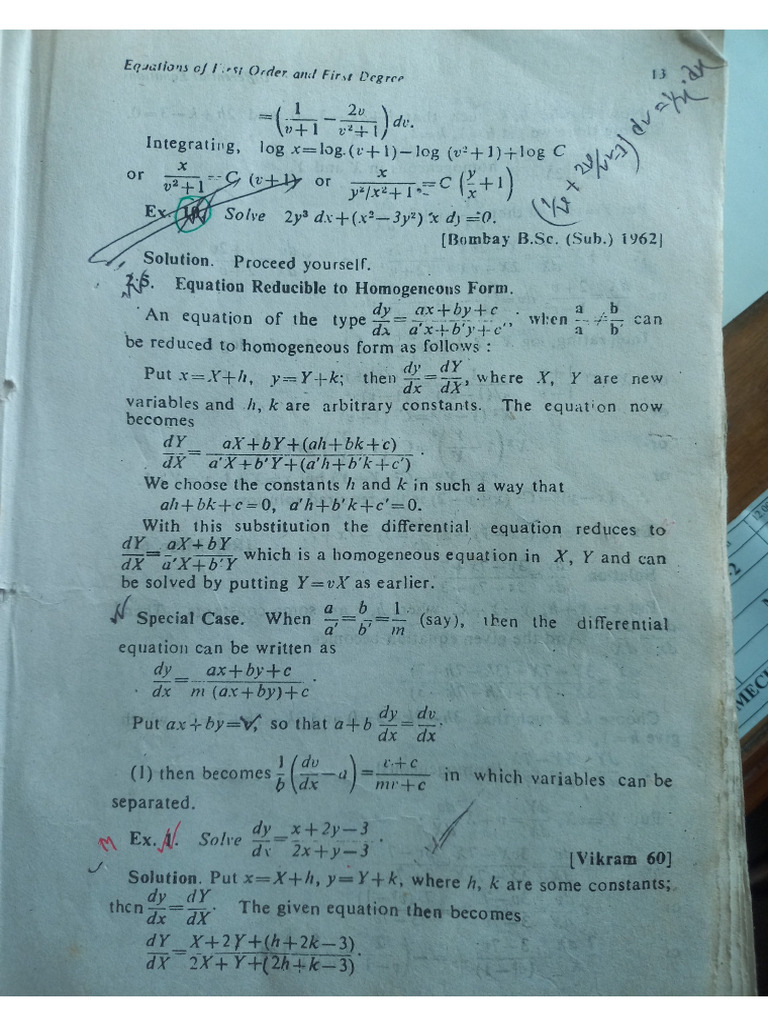 Equations of First Order and First Degree 13
=(1/(v+1) − 2v/(v²+1)) dv.
Integrating, log x=log.(v+1)−log (v²+1)+log C
or x/(v²+1)=C (v+1) or x/(y²/x²+1)=C (y/x+1)
Ex. Solve 2y³ dx+(x²−3y²) x dy=0.
[Bombay B.Sc. (Sub.) 1962]
Solution. Proceed yourself.
Equation Reducible to Homogeneous Form.
An equation of the type dy/dx=(ax+by+c)/(a'x+b'y+c'), when a/a ≠ b/b' can
be reduced to homogeneous form as follows :
Put x=X+h, y=Y+k; then dy/dx=dY/dX, where X, Y are new
variables and h, k are arbitrary constants. The equation now
becomes
dY/dX=(aX+bY+(ah+bk+c))/(a'X+b'Y+(a'h+b'k+c')).
We choose the constants h and k in such a way that
ah+bk+c=0, a'h+b'k+c'=0.
With this substitution the differential equation reduces to
dY/dX=(aX+bY)/(a'X+b'Y) which is a homogeneous equation in X, Y and can
be solved by putting Y=vX as earlier.
Special Case. When a/a'=b/b'=1/m (say), then the differential
equation can be written as
dy/dx=(ax+by+c)/(m (ax+by)+c).
Put ax+by=v, so that a+b dy/dx=dv/dx.
(1) then becomes 1/b (dv/dx−a)=(v+c)/(mv+c) in which variables can be
separated.
M Ex. 1. Solve dy/dx=(x+2y−3)/(2x+y−3).
[Vikram 60]
Solution. Put x=X+h, y=Y+k, where h, k are some constants;
then dy/dx=dY/dX. The given equation then becomes
dY/dX=(X+2Y+(h+2k−3))/(2X+Y+(2h+k−3)).